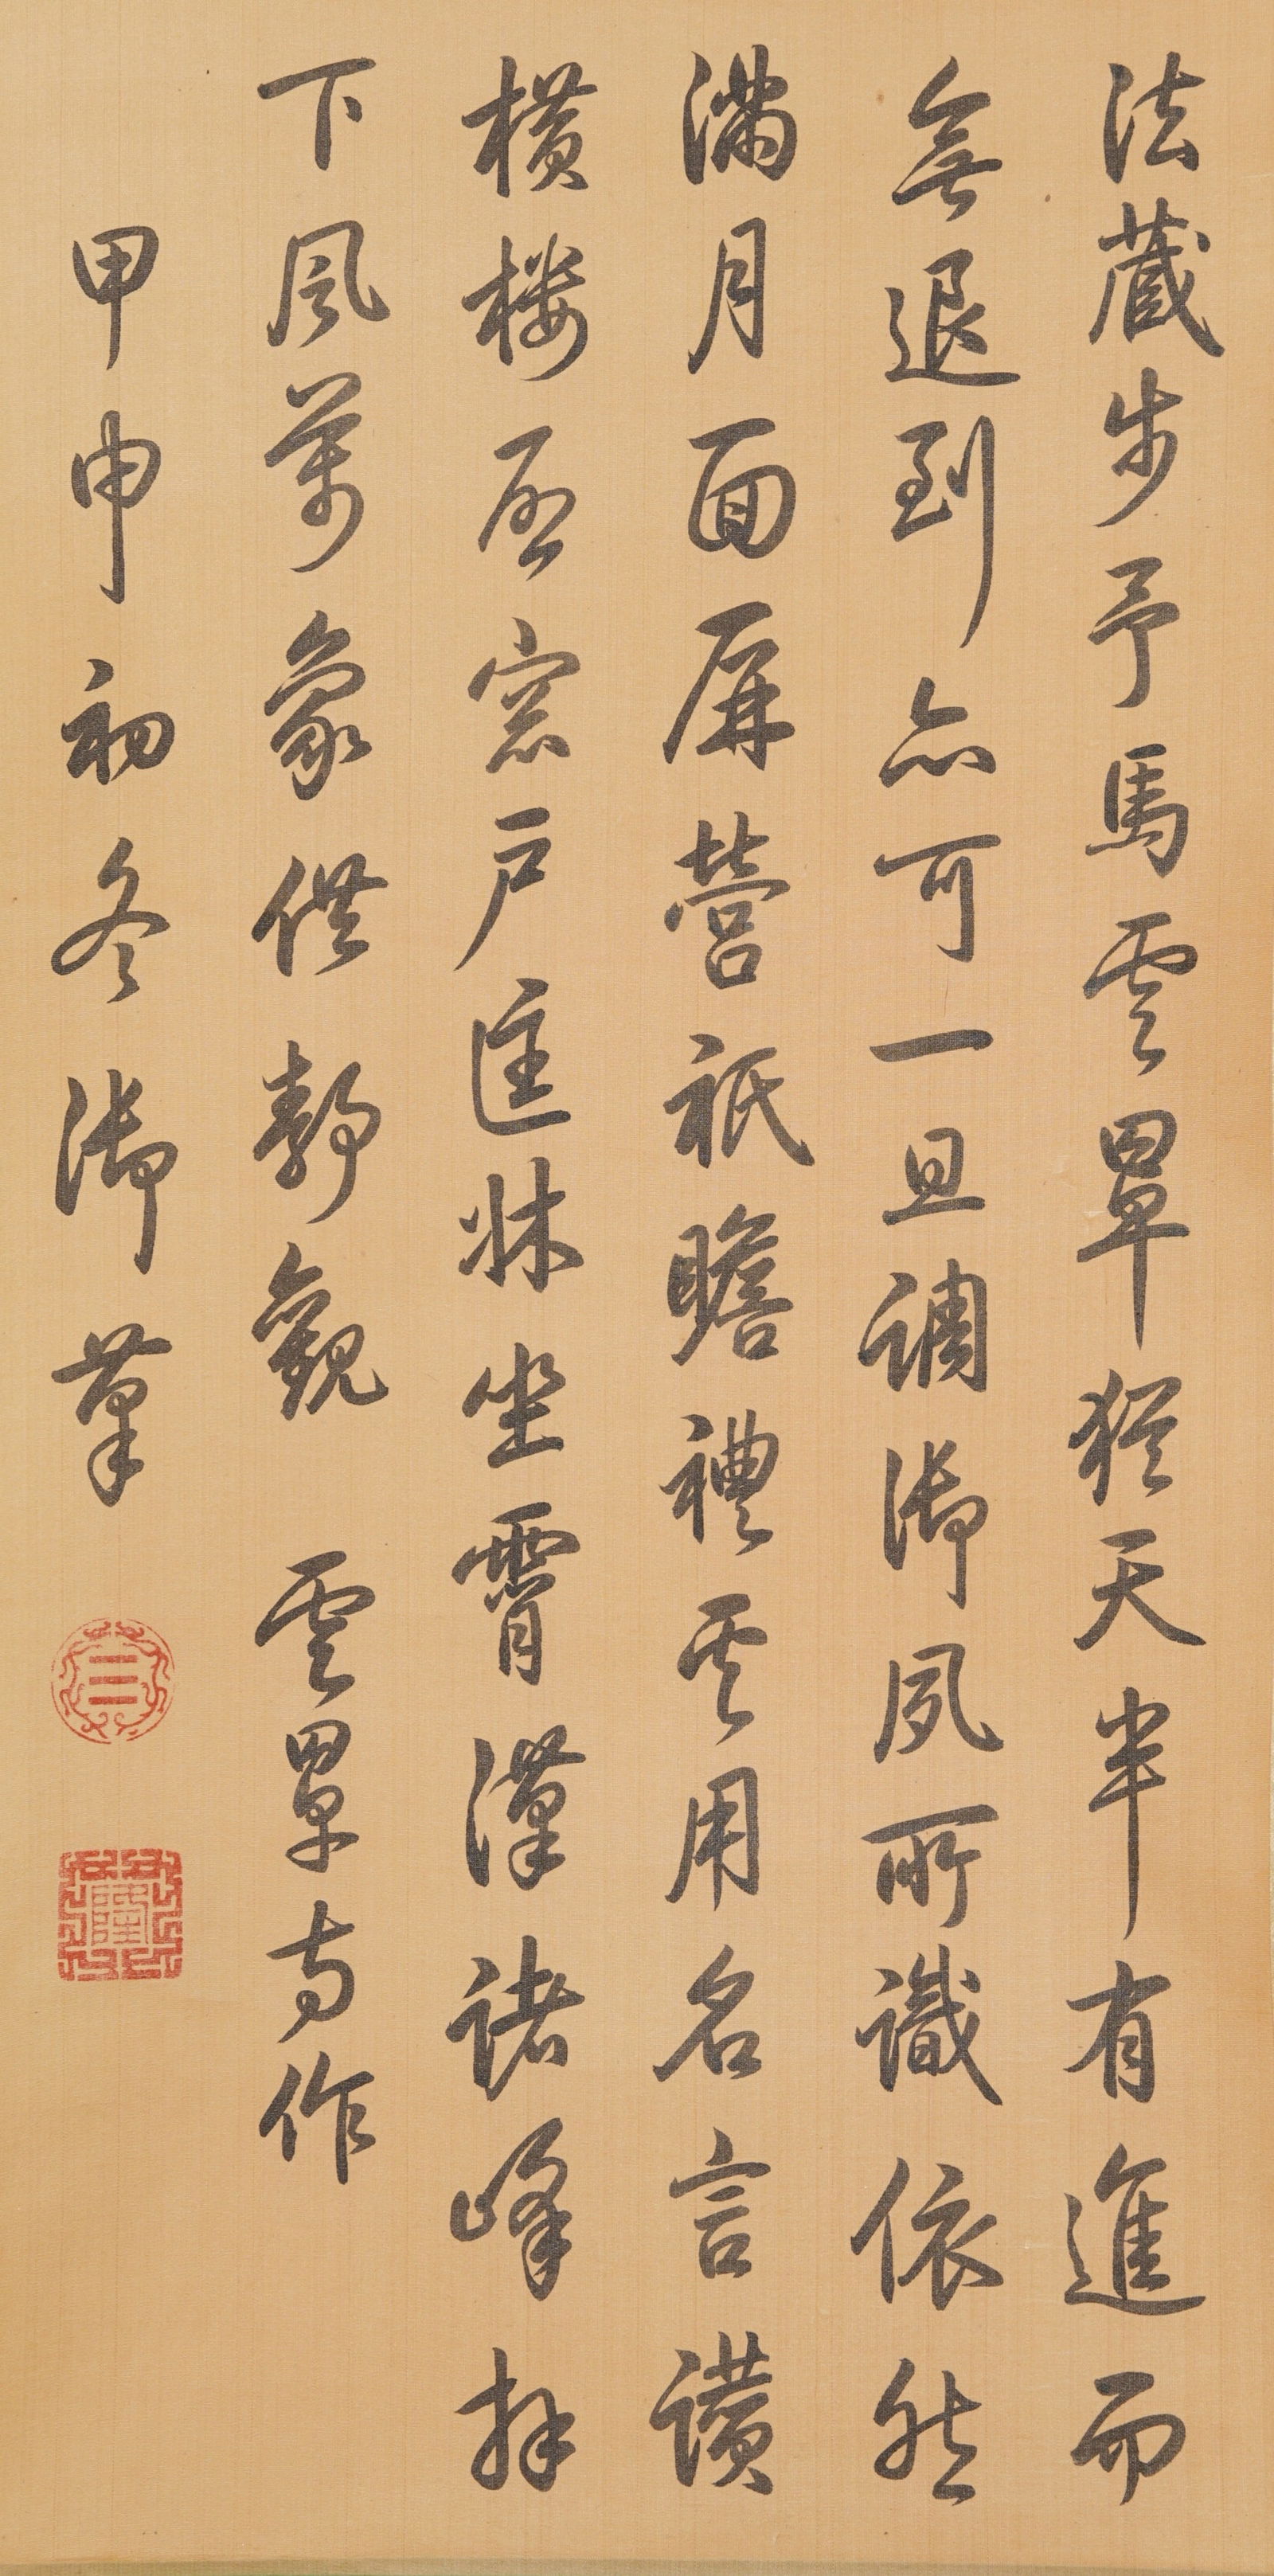 法藏步予馬雲罩猶天半有進而
無退到亦可一旦調御夙所識依然
滿月面屏營祇瞻禮奚用名言讚
橫樓啟窓戶匡牀坐霄漢諸峰拜
下風萬象供靜觀　雲罩寺作
甲申初冬御筆
☰
隆